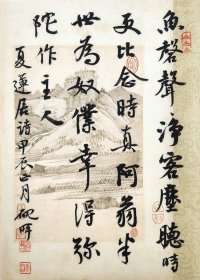 魚磬聲淨客塵聽時
更比念時真阿翁半
世為奴僕幸得彌
陀作主人
夏蓮居詩甲辰正月硯畊